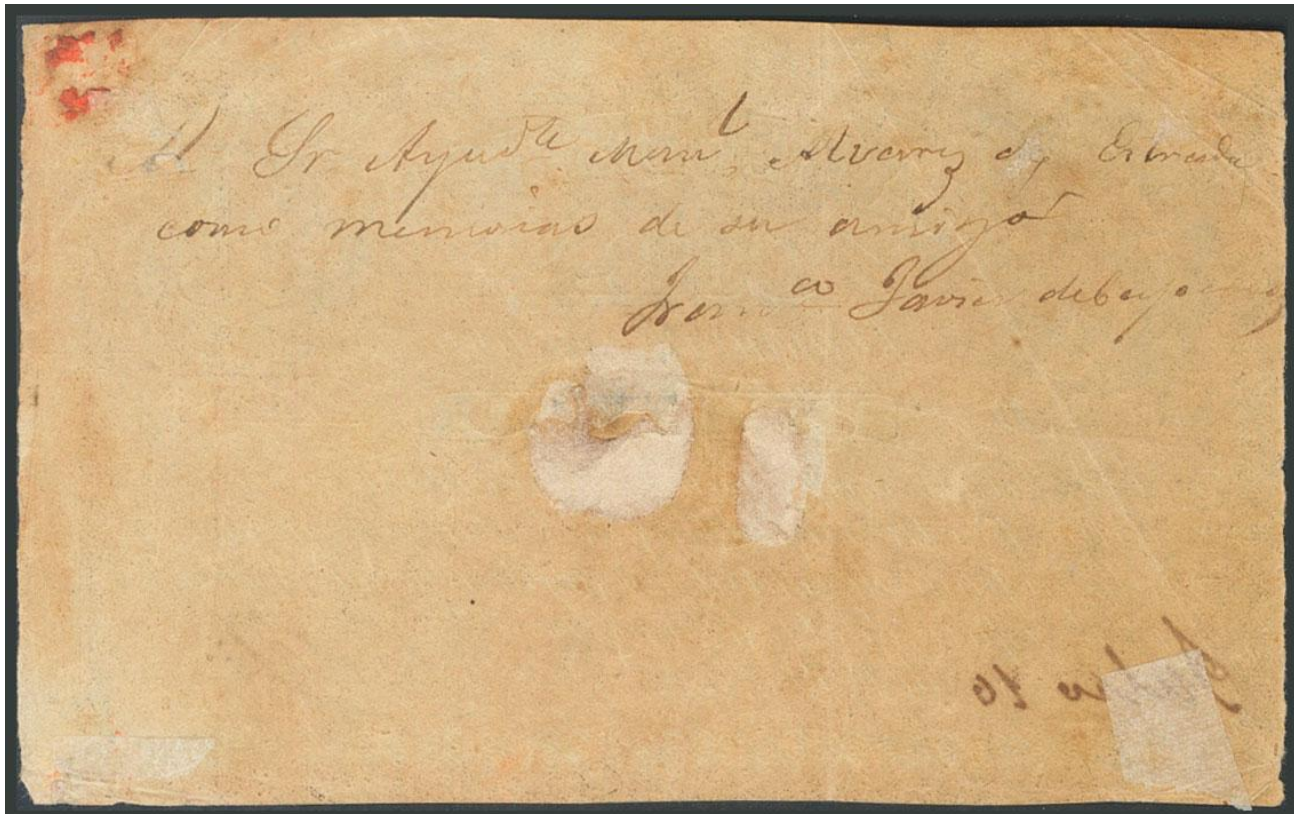 Al Sr Ayudte Manl Alvarez y Estrada
como memorias de su amigo
Franco Javier de